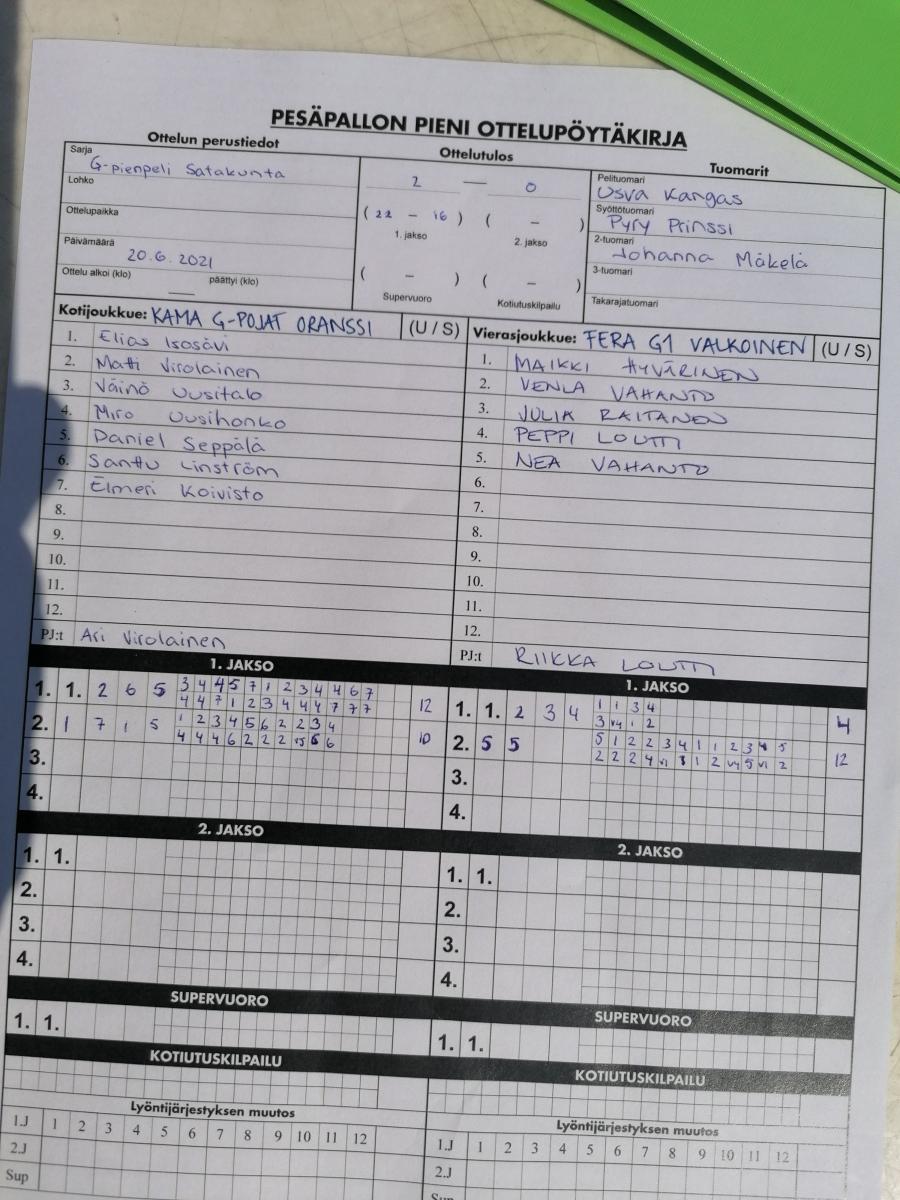 PESÄPALLON PIENI OTTELUPÖYTÄKIRJA
Ottelun perustiedot
Sarja
G-pienpeli Satakunta
Lohko
Ottelupaikka
Päivämäärä
20.6.2021
Ottelu alkoi (klo) päättyi (klo)
Ottelutulos
2 — 0
( 22 - 16 ) ( - )
1. jakso 2. jakso
( - ) ( - )
Supervuoro Kotiutuskilpailu
Tuomarit
Pelituomari
Usva Kangas
Syöttötuomari
Pyry Prinssi
2-tuomari
Johanna Mäkelä
3-tuomari
Takarajatuomari
Kotijoukkue: KAMA G-POJAT ORANSSI (U / S)
1. Elias Isosävi
2. Matti Virolainen
3. Väinö Uusitalo
4. Miro Uusihonko
5. Daniel Seppälä
6. Santtu Linström
7. Elmeri Koivisto
8.
9.
10.
11.
12.
PJ:t Ari Virolainen
Vierasjoukkue: FERA G1 VALKOINEN (U / S)
1. MAIKKI HYVÄRINEN
2. VENLA VAHANTO
3. JULIA RAITANEN
4. PEPPI LOUTTI
5. NEA VAHANTO
6.
7.
8.
9.
10.
11.
12.
PJ:t RIIKKA LOUTTI
1. JAKSO
1. 1. 2 6 5 3 4 4 5 7 1 2 3 4 4 6 7 12
4 4 7 1 2 3 4 4 4 7 7 7
2. 1 7 1 5 1 2 3 4 5 6 2 2 3 4 10
4 4 4 6 2 2 2 v5 6 6
3.
4.
2. JAKSO
1. 1.
2.
3.
4.
SUPERVUORO
1. 1.
KOTIUTUSKILPAILU
Lyöntijärjestyksen muutos
1.J 1 2 3 4 5 6 7 8 9 10 11 12
2.J
Sup
1. JAKSO
1. 1. 2 3 4 1 1 3 4 4
3 v4 1 2
2. 5 5 5 1 2 2 3 4 1 1 2 3 4 5 12
2 2 2 4 v1 3 1 2 v4 5 v1 2
3.
4.
2. JAKSO
1. 1.
2.
3.
4.
SUPERVUORO
1. 1.
KOTIUTUSKILPAILU
Lyöntijärjestyksen muutos
1.J 1 2 3 4 5 6 7 8 9 10 11 12
2.J
Sup